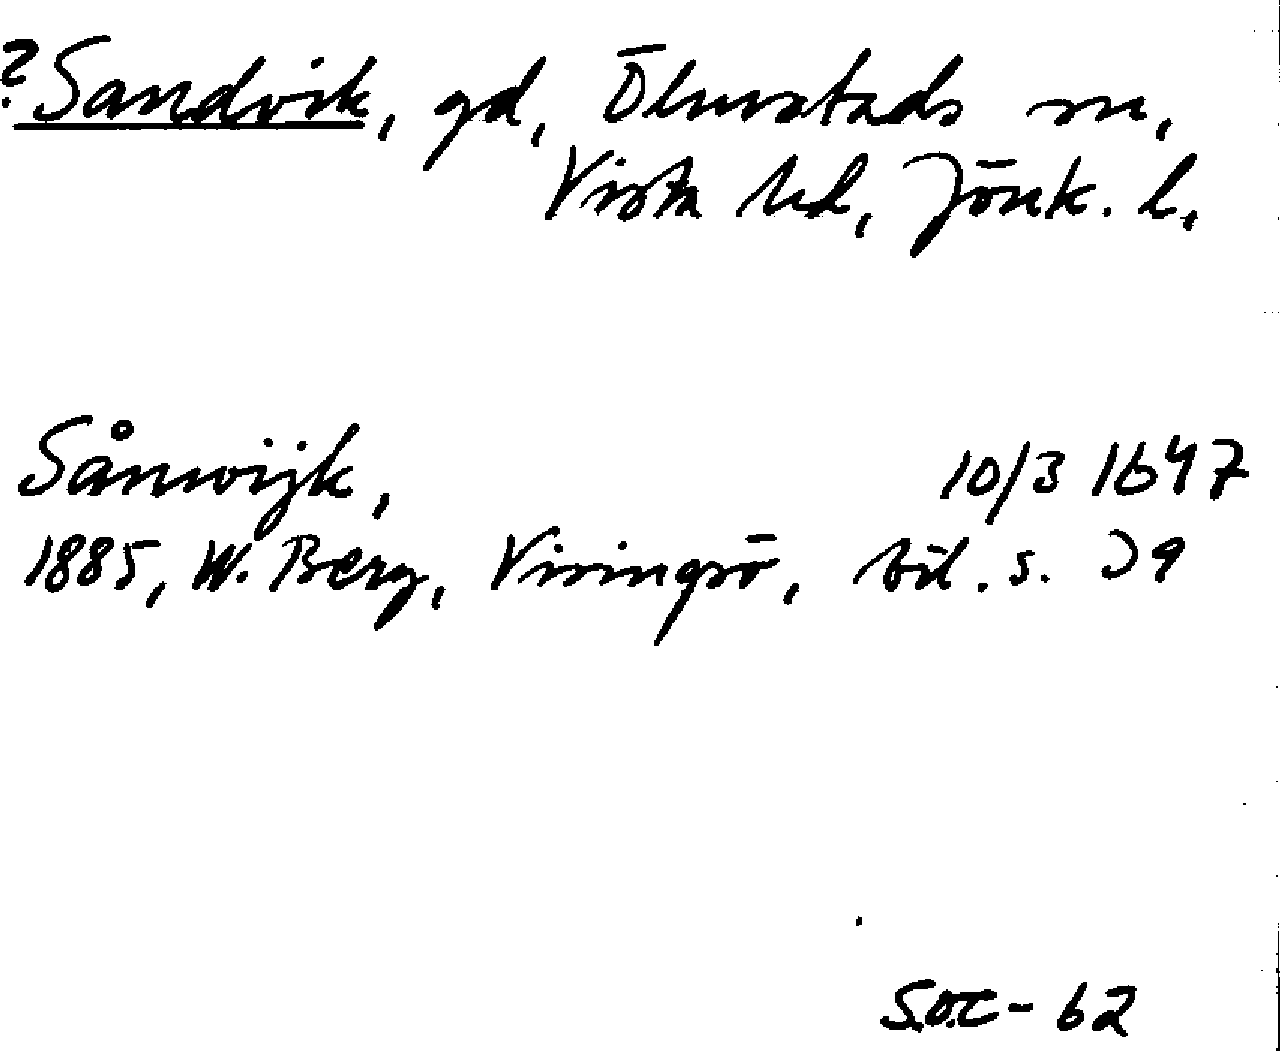 ? Sandvik, gd, Ölmstads sn,
Vista hd, Jönk. l.
Sånwijk, 10/3 1647
1885, W. Berg, Visingsö, bil. s. 29
S.O.C - 62